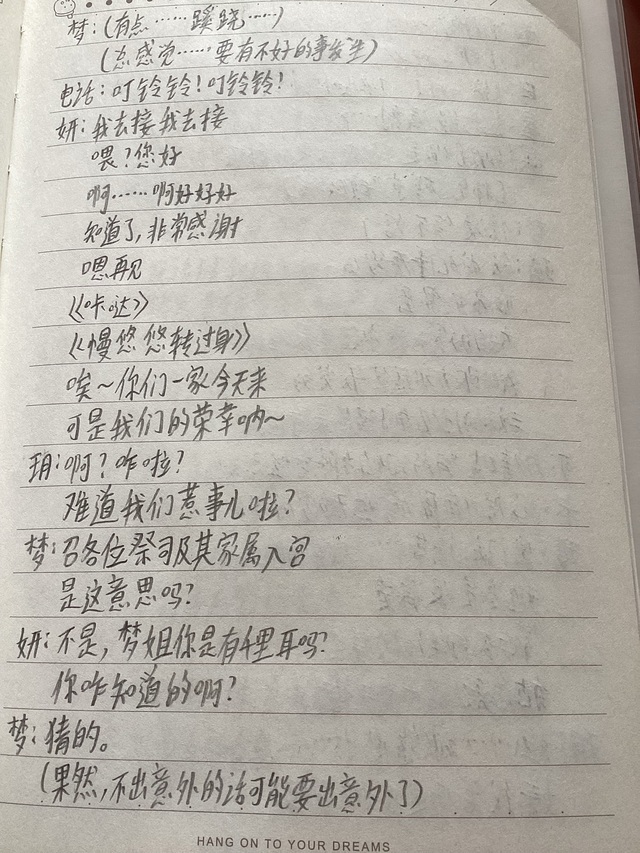 梦:(有点……蹊跷……)
(总感觉……要有不好的事发生)
电话:叮铃铃!叮铃铃!
妍:我去接我去接
喂?您好
啊……啊好好好
知道了,非常感谢
嗯再见
《咔哒》
《慢悠悠转过身》
唉~你们一家今天来
可是我们的荣幸呐~
玥:啊?咋啦?
难道我们惹事儿啦?
梦:召各位祭司及其家属入宫
是这意思吗?
妍:不是,梦姐你是有千里耳吗?
你咋知道的啊?
梦:猜的。
(果然,不出意外的话可能要出意外了)
HANG ON TO YOUR DREAMS